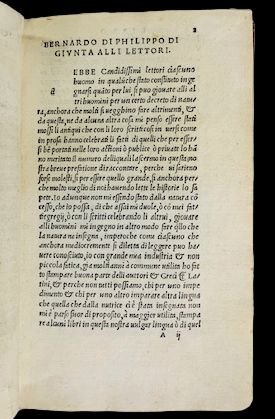 2
BERNARDO DI PHILIPPO DI
GIVNTA ALLI LETTORI.
EBBE Candidissimi lettori ciascuno
huomo in qualũche stato constituto inge
a gnarsi quãto per lui si puo giouare alli al
tri huomini per un certo decreto di natu
ra, anchora che molti si uegghino fare altrimenti, &
da questa, ne da alcuna altra cosa mi penso essere stati
mossi li antiqui che con li loro scritti cosi in uersi come
in prosa hanno celebrati li fatti di quelli che per esser
si bẽ portati nelle loro attioni ò publice ò priuati lo han
no meritato il numero delli quali lasseremo in questa no
stra breue prefatione di raccontare, perche ui sariano
forse molesti, si per essere quello grande, si anchora per
che molto meglio di noi hauendo lette le historie lo sa
pete. io adunque non mi essendo stato dalla natura cõ
cesso, che io possa, di che assai mi duole, ò cõ mei fatti
egregij, ò con li scritti celebrando li altrui, giouare
alli huomini mi ingegno in altro modo fare ciò che
la natura ne insegna, impero che come ciascuno che
anchora mediocremente si diletta di leggere puo ha
uere conosciuto, io con grande mia industria & non
piccola fatica, gia molti anni à commune utilita ho fat
to stampare buona parte delli auttori & Greci & La
tini, & perche non tutti possiamo, chi per uno impe
dimento & chi per uno altro imparare altra lingua
che quella che dalla nutrice ci è stata insegnata non
mi è parso fuor di proposito, à maggior utilita, stampa
re alcuni libri in questa nostra uulgar lingua ò di quel
A ij